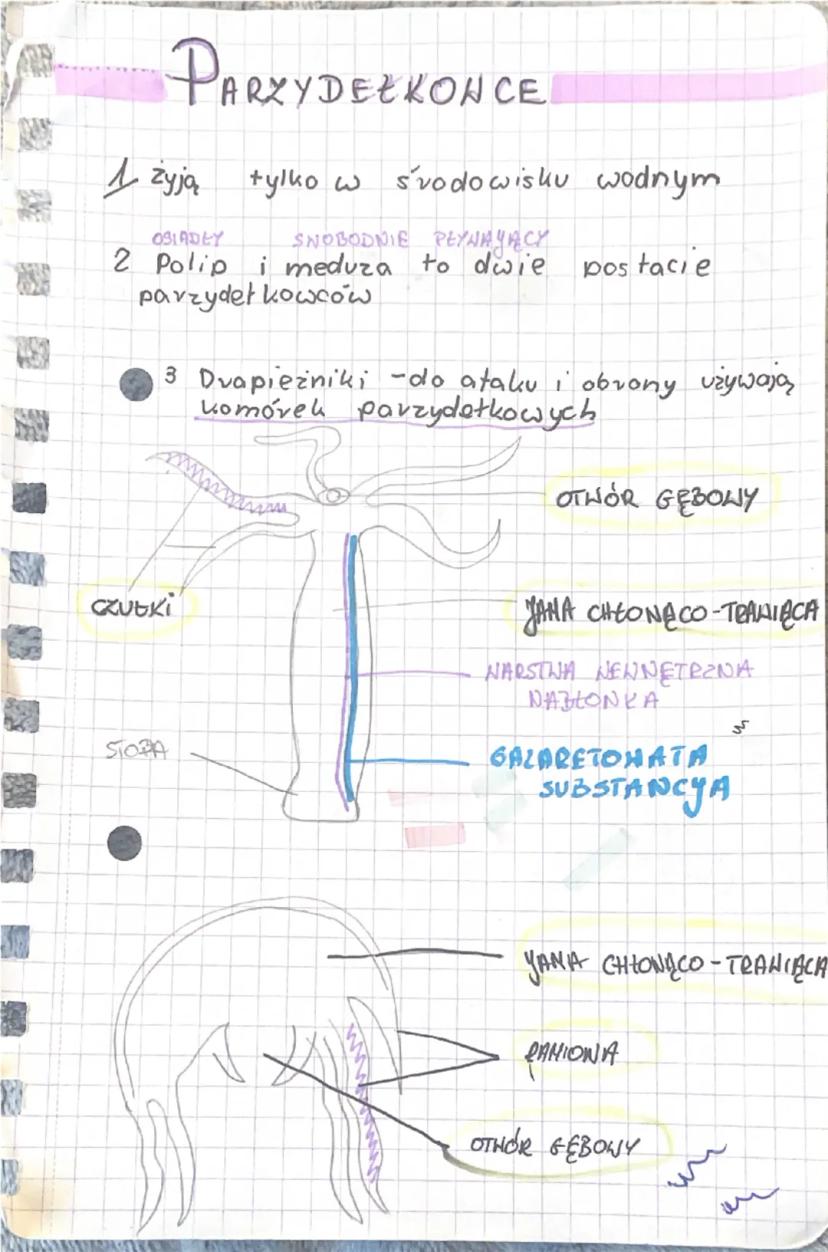 PARZYDEŁKOWCE
1 żyją tylko w środowisku wodnym
OSIADŁY SWOBODNIE PŁYWAJĄCY
2 Polip i meduza to dwie postacie
parzydełkowców
3 Drapieżniki - do ataku i obrony używają
komórek parzydełkowych
OTWÓR GĘBOWY
CZUŁKI
JAMA CHŁONĄCO-TRAWIĄCA
WARSTWA WEWNĘTRZNA
NABŁONKA
STOPA
GALARETOWATA
SUBSTANCJA
JAMA CHŁONĄCO-TRAWIĄCA
RAMIONA
OTWÓR GĘBOWY